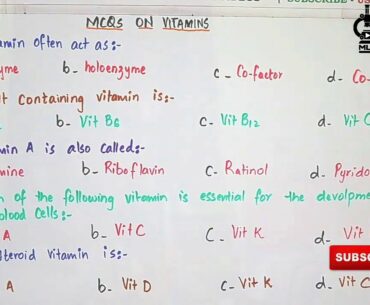 SUBSCRIBE
MCQS ON VITAMINS
amin often act as:-
yme b- holoenzyme c- Co-factor d- Co-
t Containing vitamin is:-
b- Vit B6 c- Vit B12 d- Vit C
min A is also called:-
mine b- Riboflavin c- Ratinol d- Pyrido
n of the following vitamin is essential for the devolpme
blood Cells:-
A b- Vit C c- Vit K d- Vit
steroid vitamin is:-
SUBSC
A b- Vit D c- Vit K d- Vit C